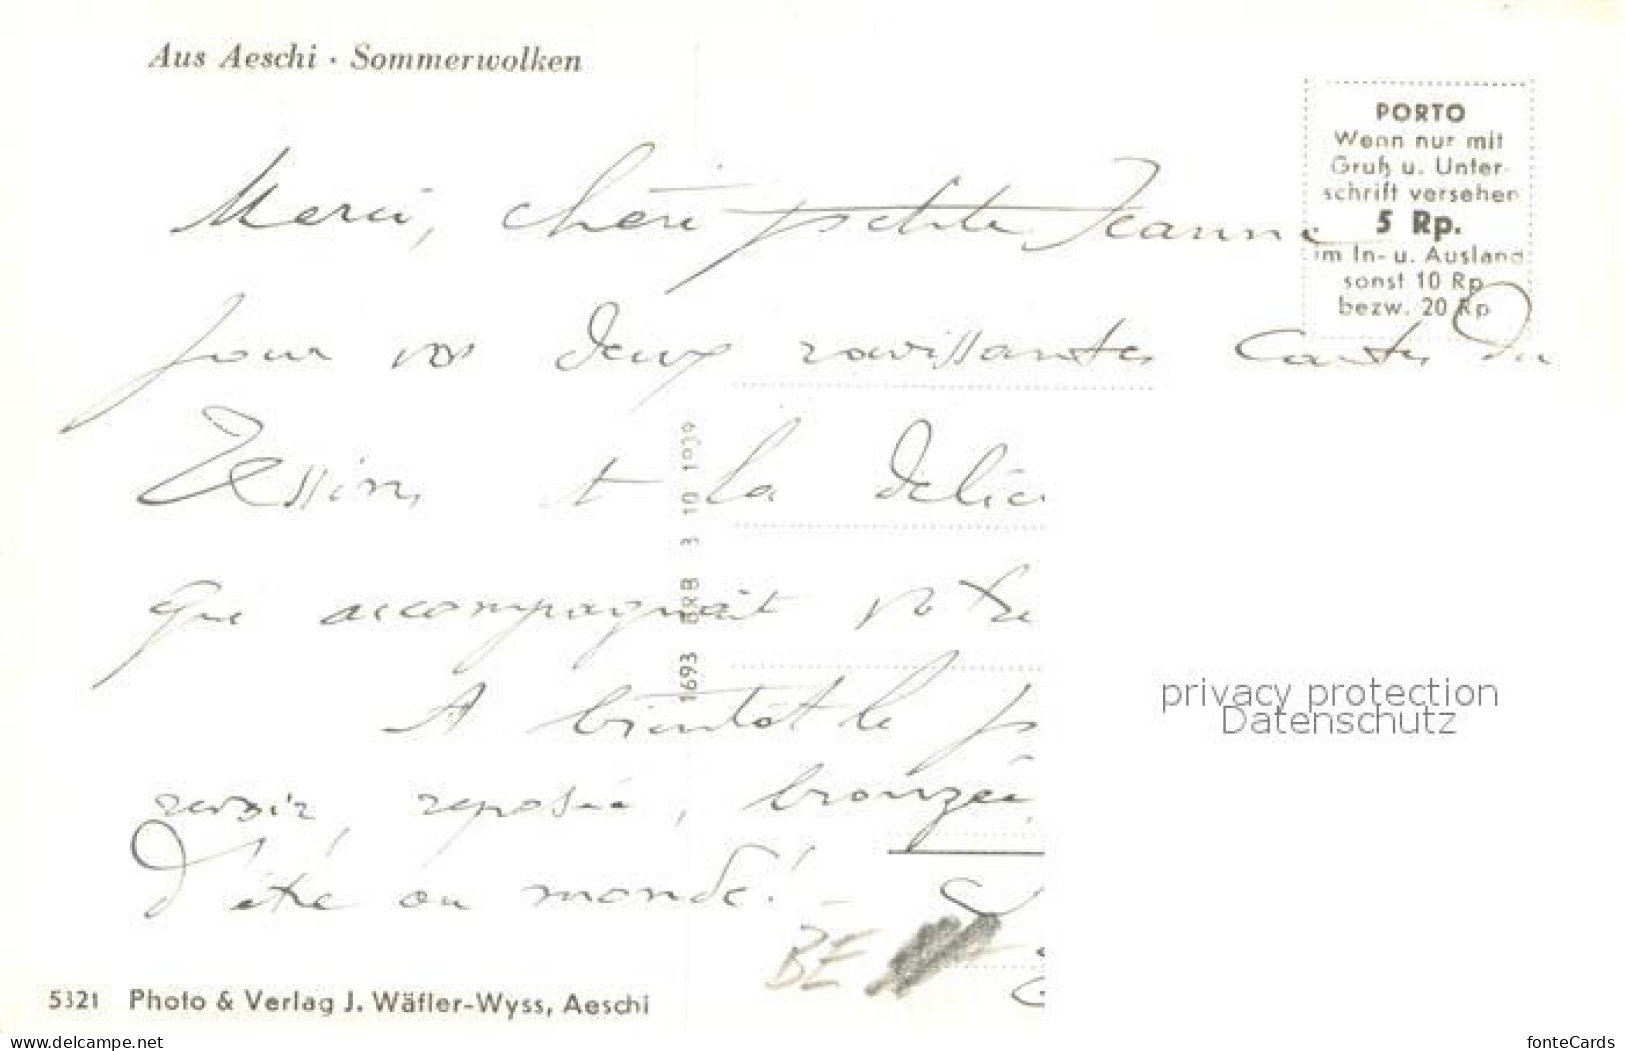 Aus Aeschi · Sommerwolken
PORTO
Wenn nur mit
Gruß u. Unter-
schrift versehen
5 Rp.
im In- u. Ausland
sonst 10 Rp
bezw. 20 Rp
Merci, chère petite Jeanne
pour vos deux ravissantes cartes du
Tessin, et la délic
que accompagnait votre
A bientôt le p
revoir, reposée, bronzée,
d'été au monde! -
BE
1693 BRB 3 10 1939
privacy protection
Datenschutz
5321 Photo & Verlag J. Wäfler-Wyss, Aeschi
www.delcampe.net
fonteCards